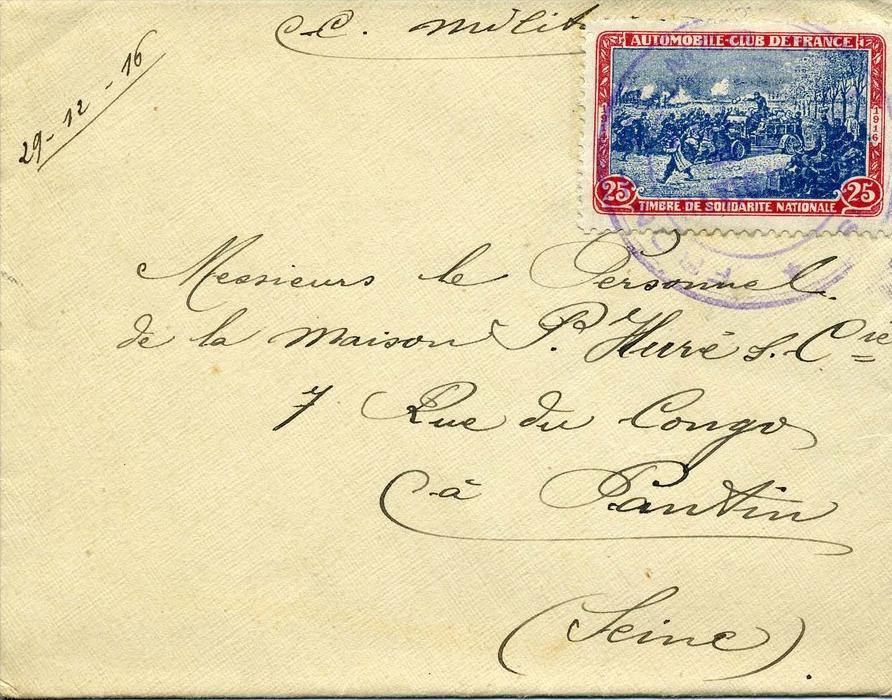 C.C. milit
29-12-16
AUTOMOBILE-CLUB DE FRANCE
1914 1916
25 TIMBRE DE SOLIDARITE NATIONALE 25
Messieurs le Personnel
de la maison P. Huré s. Cie
7 Rue du Congo
à Pantin
(Seine).